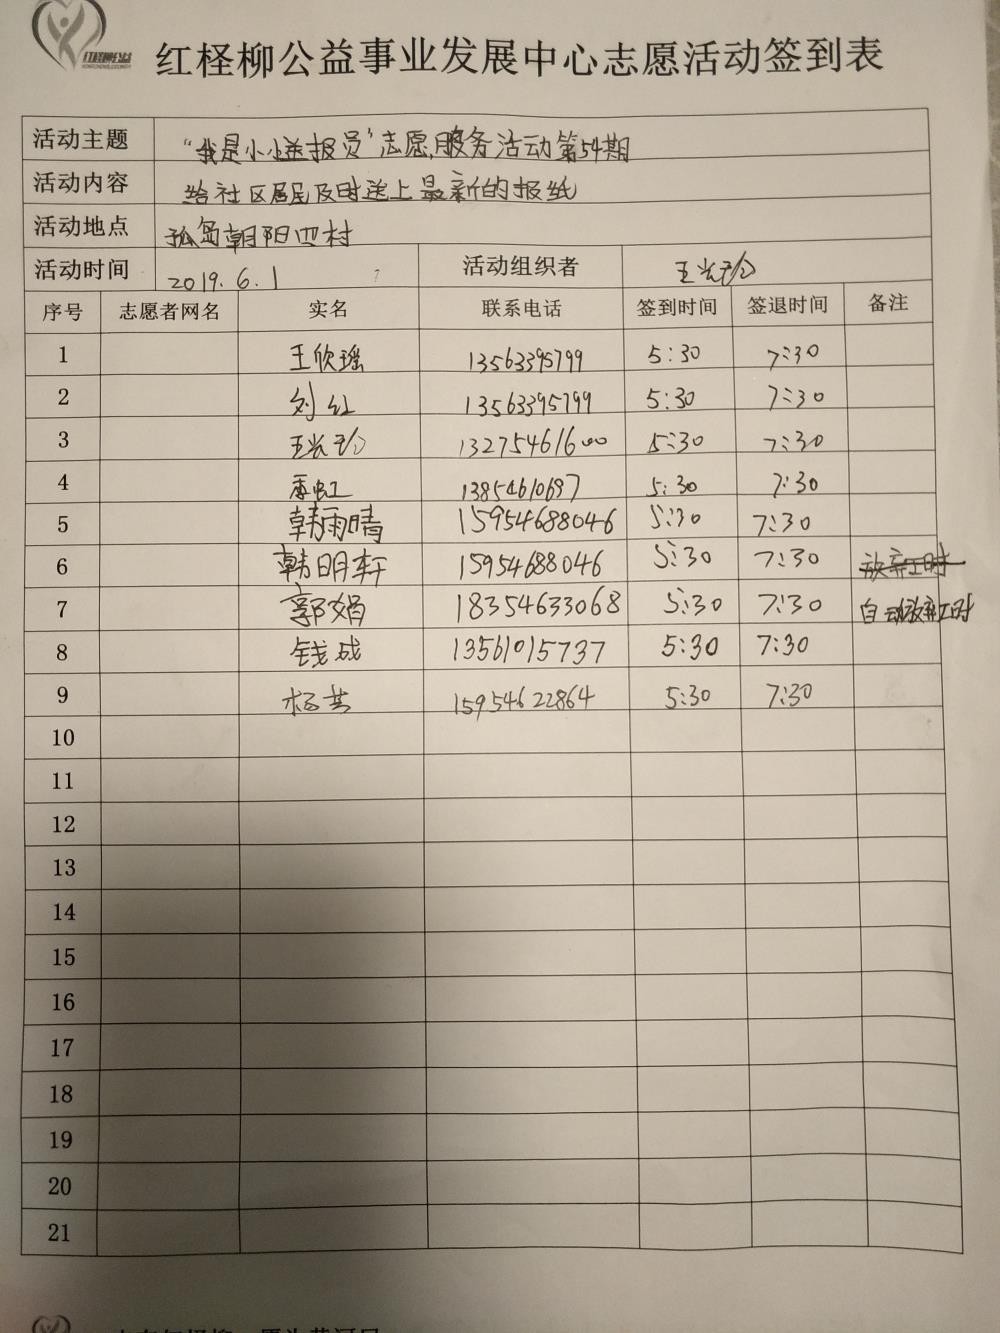 红柽柳公益
红柽柳公益事业发展中心志愿活动签到表
活动主题 "我是小小送报员"志愿服务活动第54期
活动内容 给社区居民及时送上最新的报纸
活动地点 孤岛朝阳四村
活动时间 2019.6.1 活动组织者
序号 志愿者网名 实名 联系电话 签到时间 签退时间 备注
1 王欣瑶 13563395799 5:30 7:30
2 刘红 13563395799 5:30 7:30
3 13275461600 5:30 7:30
4 13854610697 5:30 7:30
5 韩雨晴 15954688046 5:30 7:30
6 韩明轩 15954688046 5:30 7:30 放弃工时
7 郭娟 18354633068 5:30 7:30 自动放弃工时
8 钱成 13561015737 5:30 7:30
9 15954622864 5:30 7:30
10
11
12
13
14
15
16
17
18
19
20
21